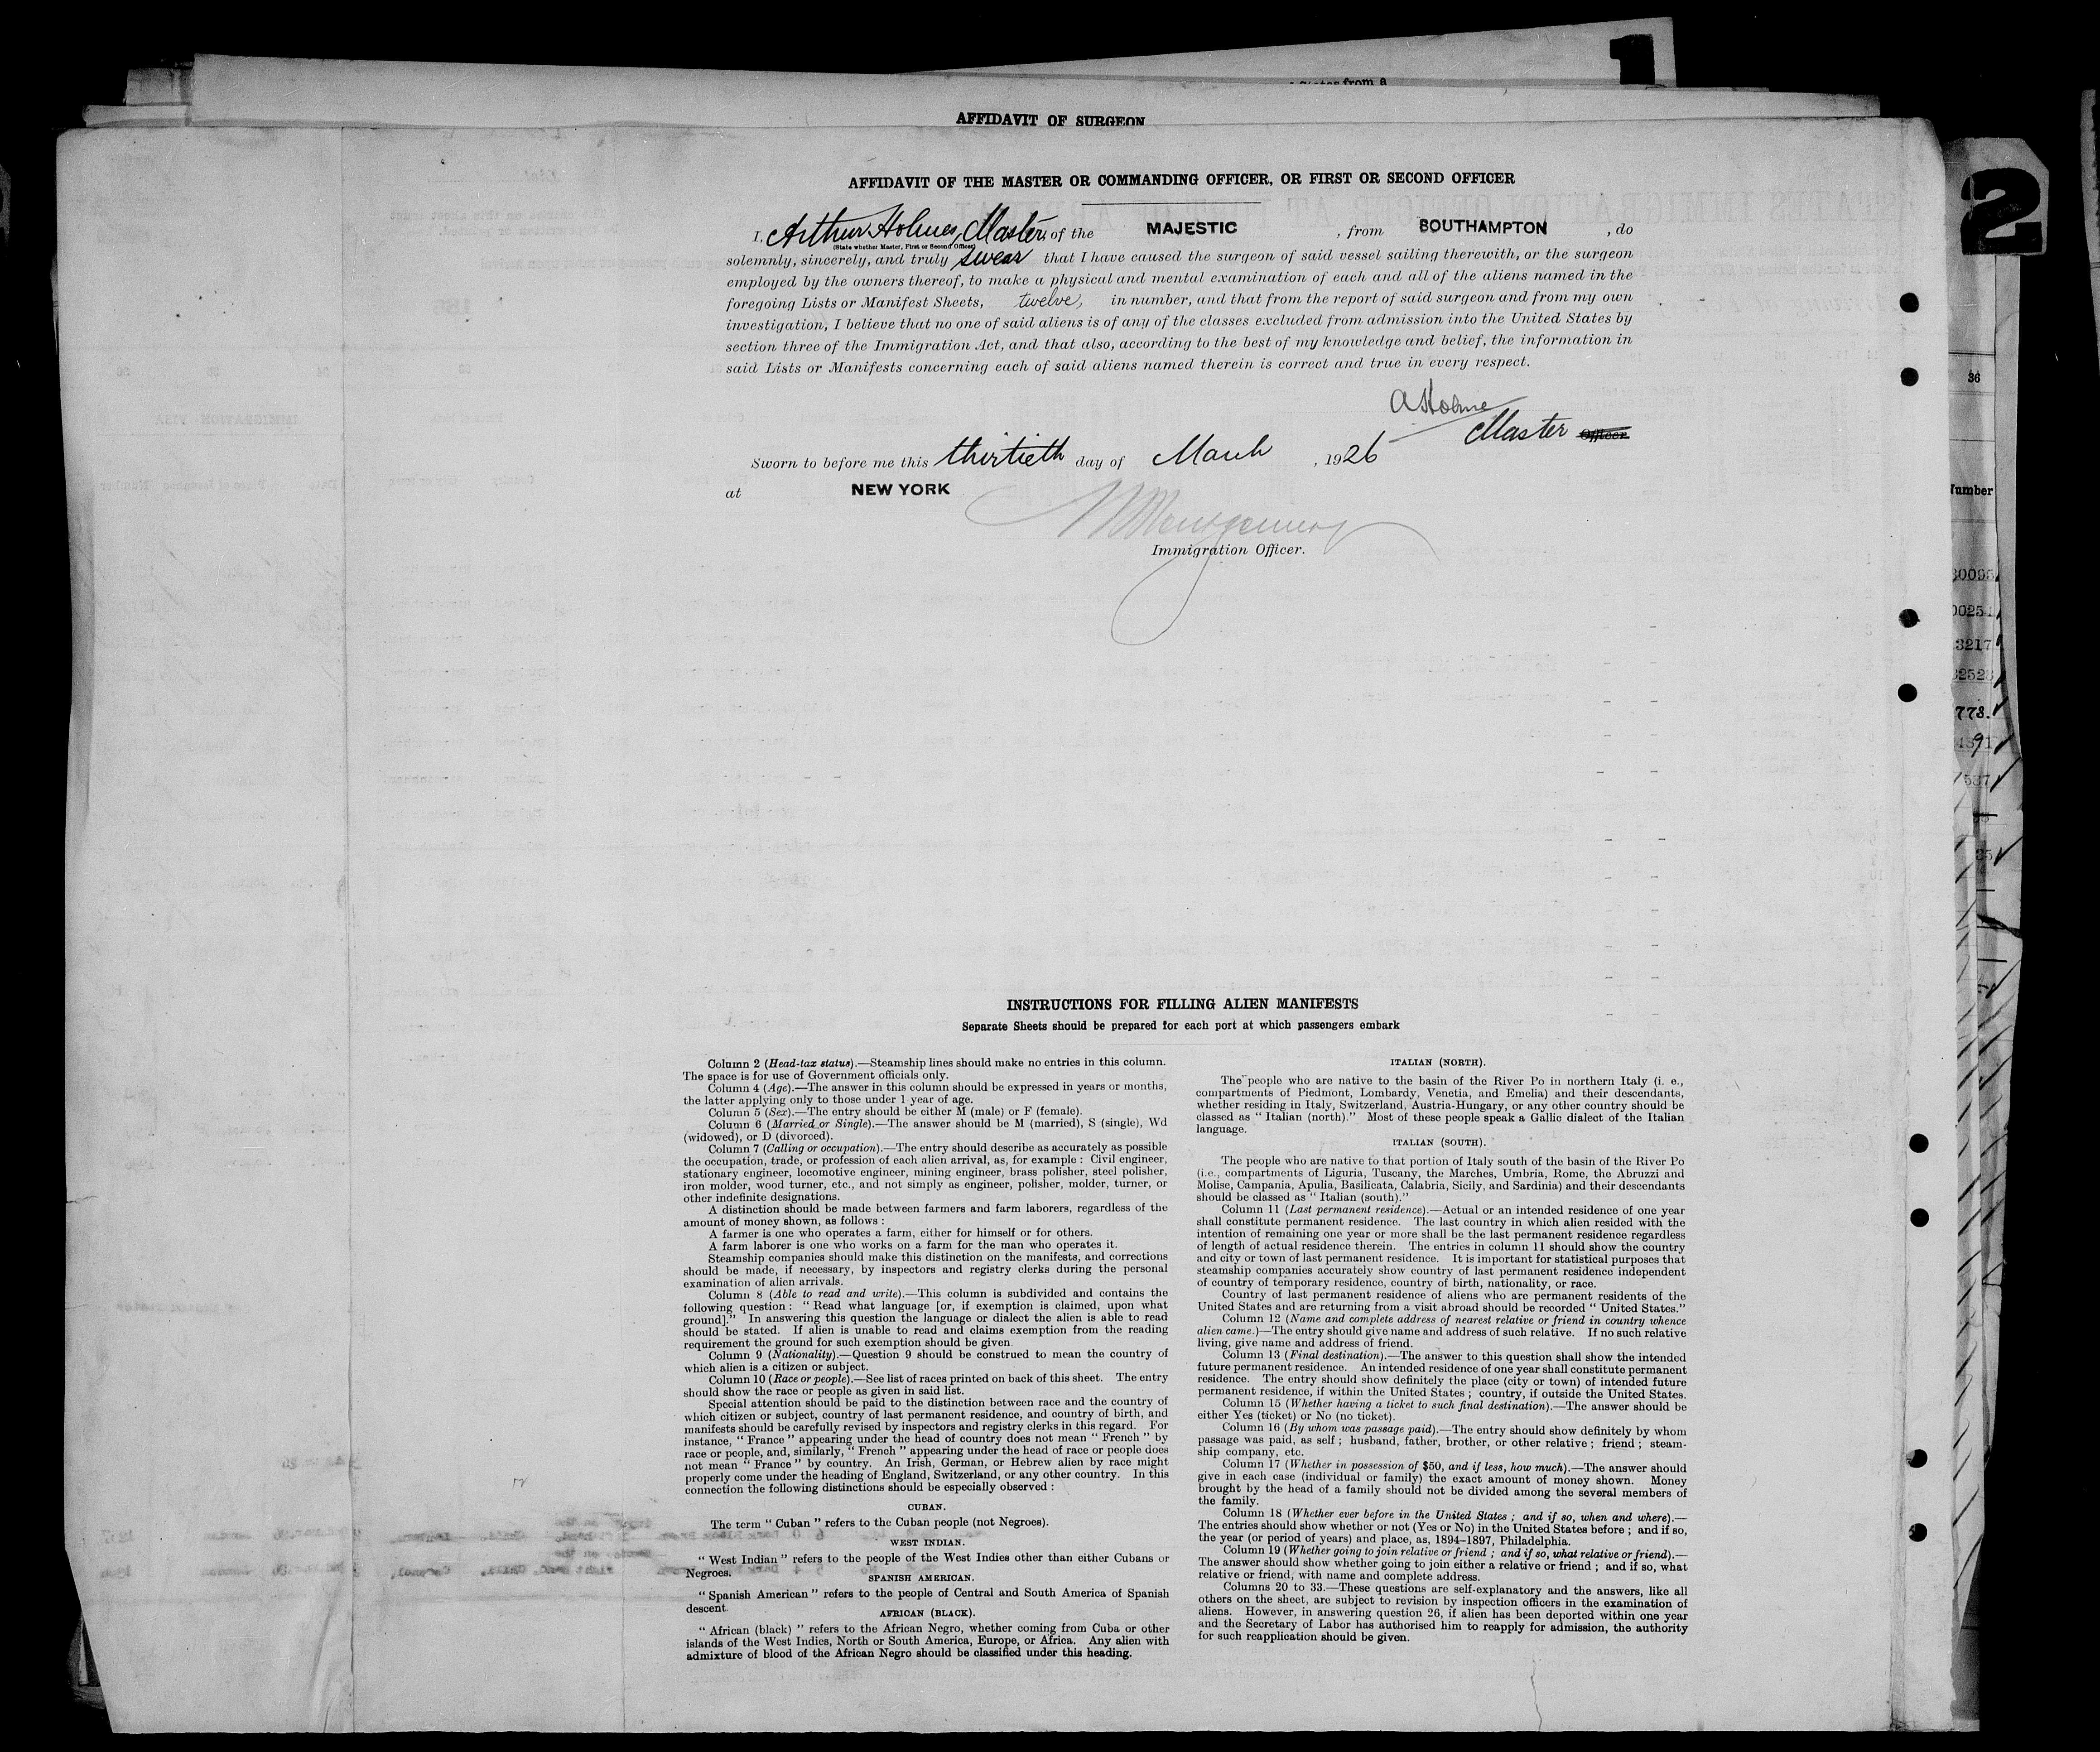 AFFIDAVIT OF SURGEON
AFFIDAVIT OF THE MASTER OR COMMANDING OFFICER, OR FIRST OR SECOND OFFICER
I, Arthur Holmes, Master, of the MAJESTIC, from SOUTHAMPTON, do
(State whether Master, First or Second Officer)
solemnly, sincerely, and truly swear that I have caused the surgeon of said vessel sailing therewith, or the surgeon
employed by the owners thereof, to make a physical and mental examination of each and all of the aliens named in the
foregoing Lists or Manifest Sheets, twelve, in number, and that from the report of said surgeon and from my own
investigation, I believe that no one of said aliens is of any of the classes excluded from admission into the United States by
section three of the Immigration Act, and that also, according to the best of my knowledge and belief, the information in
said Lists or Manifests concerning each of said aliens named therein is correct and true in every respect.
A Holme
Master Officer.
Sworn to before me this thirtieth day of March, 1926
at NEW YORK
Immigration Officer.
INSTRUCTIONS FOR FILLING ALIEN MANIFESTS
Separate Sheets should be prepared for each port at which passengers embark
Column 2 (Head-tax status).—Steamship lines should make no entries in this column.
The space is for use of Government officials only.
Column 4 (Age).—The answer in this column should be expressed in years or months,
the latter applying only to those under 1 year of age.
Column 5 (Sex).—The entry should be either M (male) or F (female).
Column 6 (Married or Single).—The answer should be M (married), S (single), Wd
(widowed), or D (divorced).
Column 7 (Calling or occupation).—The entry should describe as accurately as possible
the occupation, trade, or profession of each alien arrival, as, for example : Civil engineer,
stationary engineer, locomotive engineer, mining engineer, brass polisher, steel polisher,
iron molder, wood turner, etc., and not simply as engineer, polisher, molder, turner, or
other indefinite designations.
A distinction should be made between farmers and farm laborers, regardless of the
amount of money shown, as follows :
A farmer is one who operates a farm, either for himself or for others.
A farm laborer is one who works on a farm for the man who operates it.
Steamship companies should make this distinction on the manifests, and corrections
should be made, if necessary, by inspectors and registry clerks during the personal
examination of alien arrivals.
Column 8 (Able to read and write).—This column is subdivided and contains the
following question : “ Read what language [or, if exemption is claimed, upon what
ground].” In answering this question the language or dialect the alien is able to read
should be stated. If alien is unable to read and claims exemption from the reading
requirement the ground for such exemption should be given.
Column 9 (Nationality).—Question 9 should be construed to mean the country of
which alien is a citizen or subject.
Column 10 (Race or people).—See list of races printed on back of this sheet. The entry
should show the race or people as given in said list.
Special attention should be paid to the distinction between race and the country of
which citizen or subject, country of last permanent residence, and country of birth, and
manifests should be carefully revised by inspectors and registry clerks in this regard. For
instance, “ France ” appearing under the head of country does not mean “ French ” by
race or people, and, similarly, “ French ” appearing under the head of race or people does
not mean “ France ” by country. An Irish, German, or Hebrew alien by race might
properly come under the heading of England, Switzerland, or any other country. In this
connection the following distinctions should be especially observed :
CUBAN.
The term “ Cuban ” refers to the Cuban people (not Negroes).
WEST INDIAN.
“ West Indian ” refers to the people of the West Indies other than either Cubans or
Negroes.
SPANISH AMERICAN.
“ Spanish American ” refers to the people of Central and South America of Spanish
descent.
AFRICAN (BLACK).
“ African (black) ” refers to the African Negro, whether coming from Cuba or other
islands of the West Indies, North or South America, Europe, or Africa. Any alien with
admixture of blood of the African Negro should be classified under this heading.
ITALIAN (NORTH).
The people who are native to the basin of the River Po in northern Italy (i. e.,
compartments of Piedmont, Lombardy, Venetia, and Emelia) and their descendants,
whether residing in Italy, Switzerland, Austria-Hungary, or any other country should be
classed as “ Italian (north).” Most of these people speak a Gallic dialect of the Italian
language.
ITALIAN (SOUTH).
The people who are native to that portion of Italy south of the basin of the River Po
(i.e., compartments of Liguria, Tuscany, the Marches, Umbria, Rome, the Abruzzi and
Molise, Campania, Apulia, Basilicata, Calabria, Sicily, and Sardinia) and their descendants
should be classed as “ Italian (south).”
Column 11 (Last permanent residence).—Actual or an intended residence of one year
shall constitute permanent residence. The last country in which alien resided with the
intention of remaining one year or more shall be the last permanent residence regardless
of length of actual residence therein. The entries in column 11 should show the country
and city or town of last permanent residence. It is important for statistical purposes that
steamship companies accurately show country of last permanent residence independent
of country of temporary residence, country of birth, nationality, or race.
Country of last permanent residence of aliens who are permanent residents of the
United States and are returning from a visit abroad should be recorded “ United States.”
Column 12 (Name and complete address of nearest relative or friend in country whence
alien came.)—The entry should give name and address of such relative. If no such relative
living, give name and address of friend.
Column 13 (Final destination).—The answer to this question shall show the intended
future permanent residence. An intended residence of one year shall constitute permanent
residence. The entry should show definitely the place (city or town) of intended future
permanent residence, if within the United States ; country, if outside the United States.
Column 15 (Whether having a ticket to such final destination).—The answer should be
either Yes (ticket) or No (no ticket).
Column 16 (By whom was passage paid).—The entry should show definitely by whom
passage was paid, as self ; husband, father, brother, or other relative ; friend ; steam-
ship company, etc.
Column 17 (Whether in possession of $50, and if less, how much).—The answer should
give in each case (individual or family) the exact amount of money shown. Money
brought by the head of a family should not be divided among the several members of
the family.
Column 18 (Whether ever before in the United States ; and if so, when and where).—
The entries should show whether or not (Yes or No) in the United States before ; and if so,
the year (or period of years) and place, as, 1894–1897, Philadelphia.
Column 19 (Whether going to join relative or friend ; and if so, what relative or friend).—
The answer should show whether going to join either a relative or friend ; and if so, what
relative or friend, with name and complete address.
Columns 20 to 33.—These questions are self-explanatory and the answers, like all
others on the sheet, are subject to revision by inspection officers in the examination of
aliens. However, in answering question 26, if alien has been deported within one year
and the Secretary of Labor has authorised him to reapply for admission, the authority
for such reapplication should be given.
1
2
36
Number